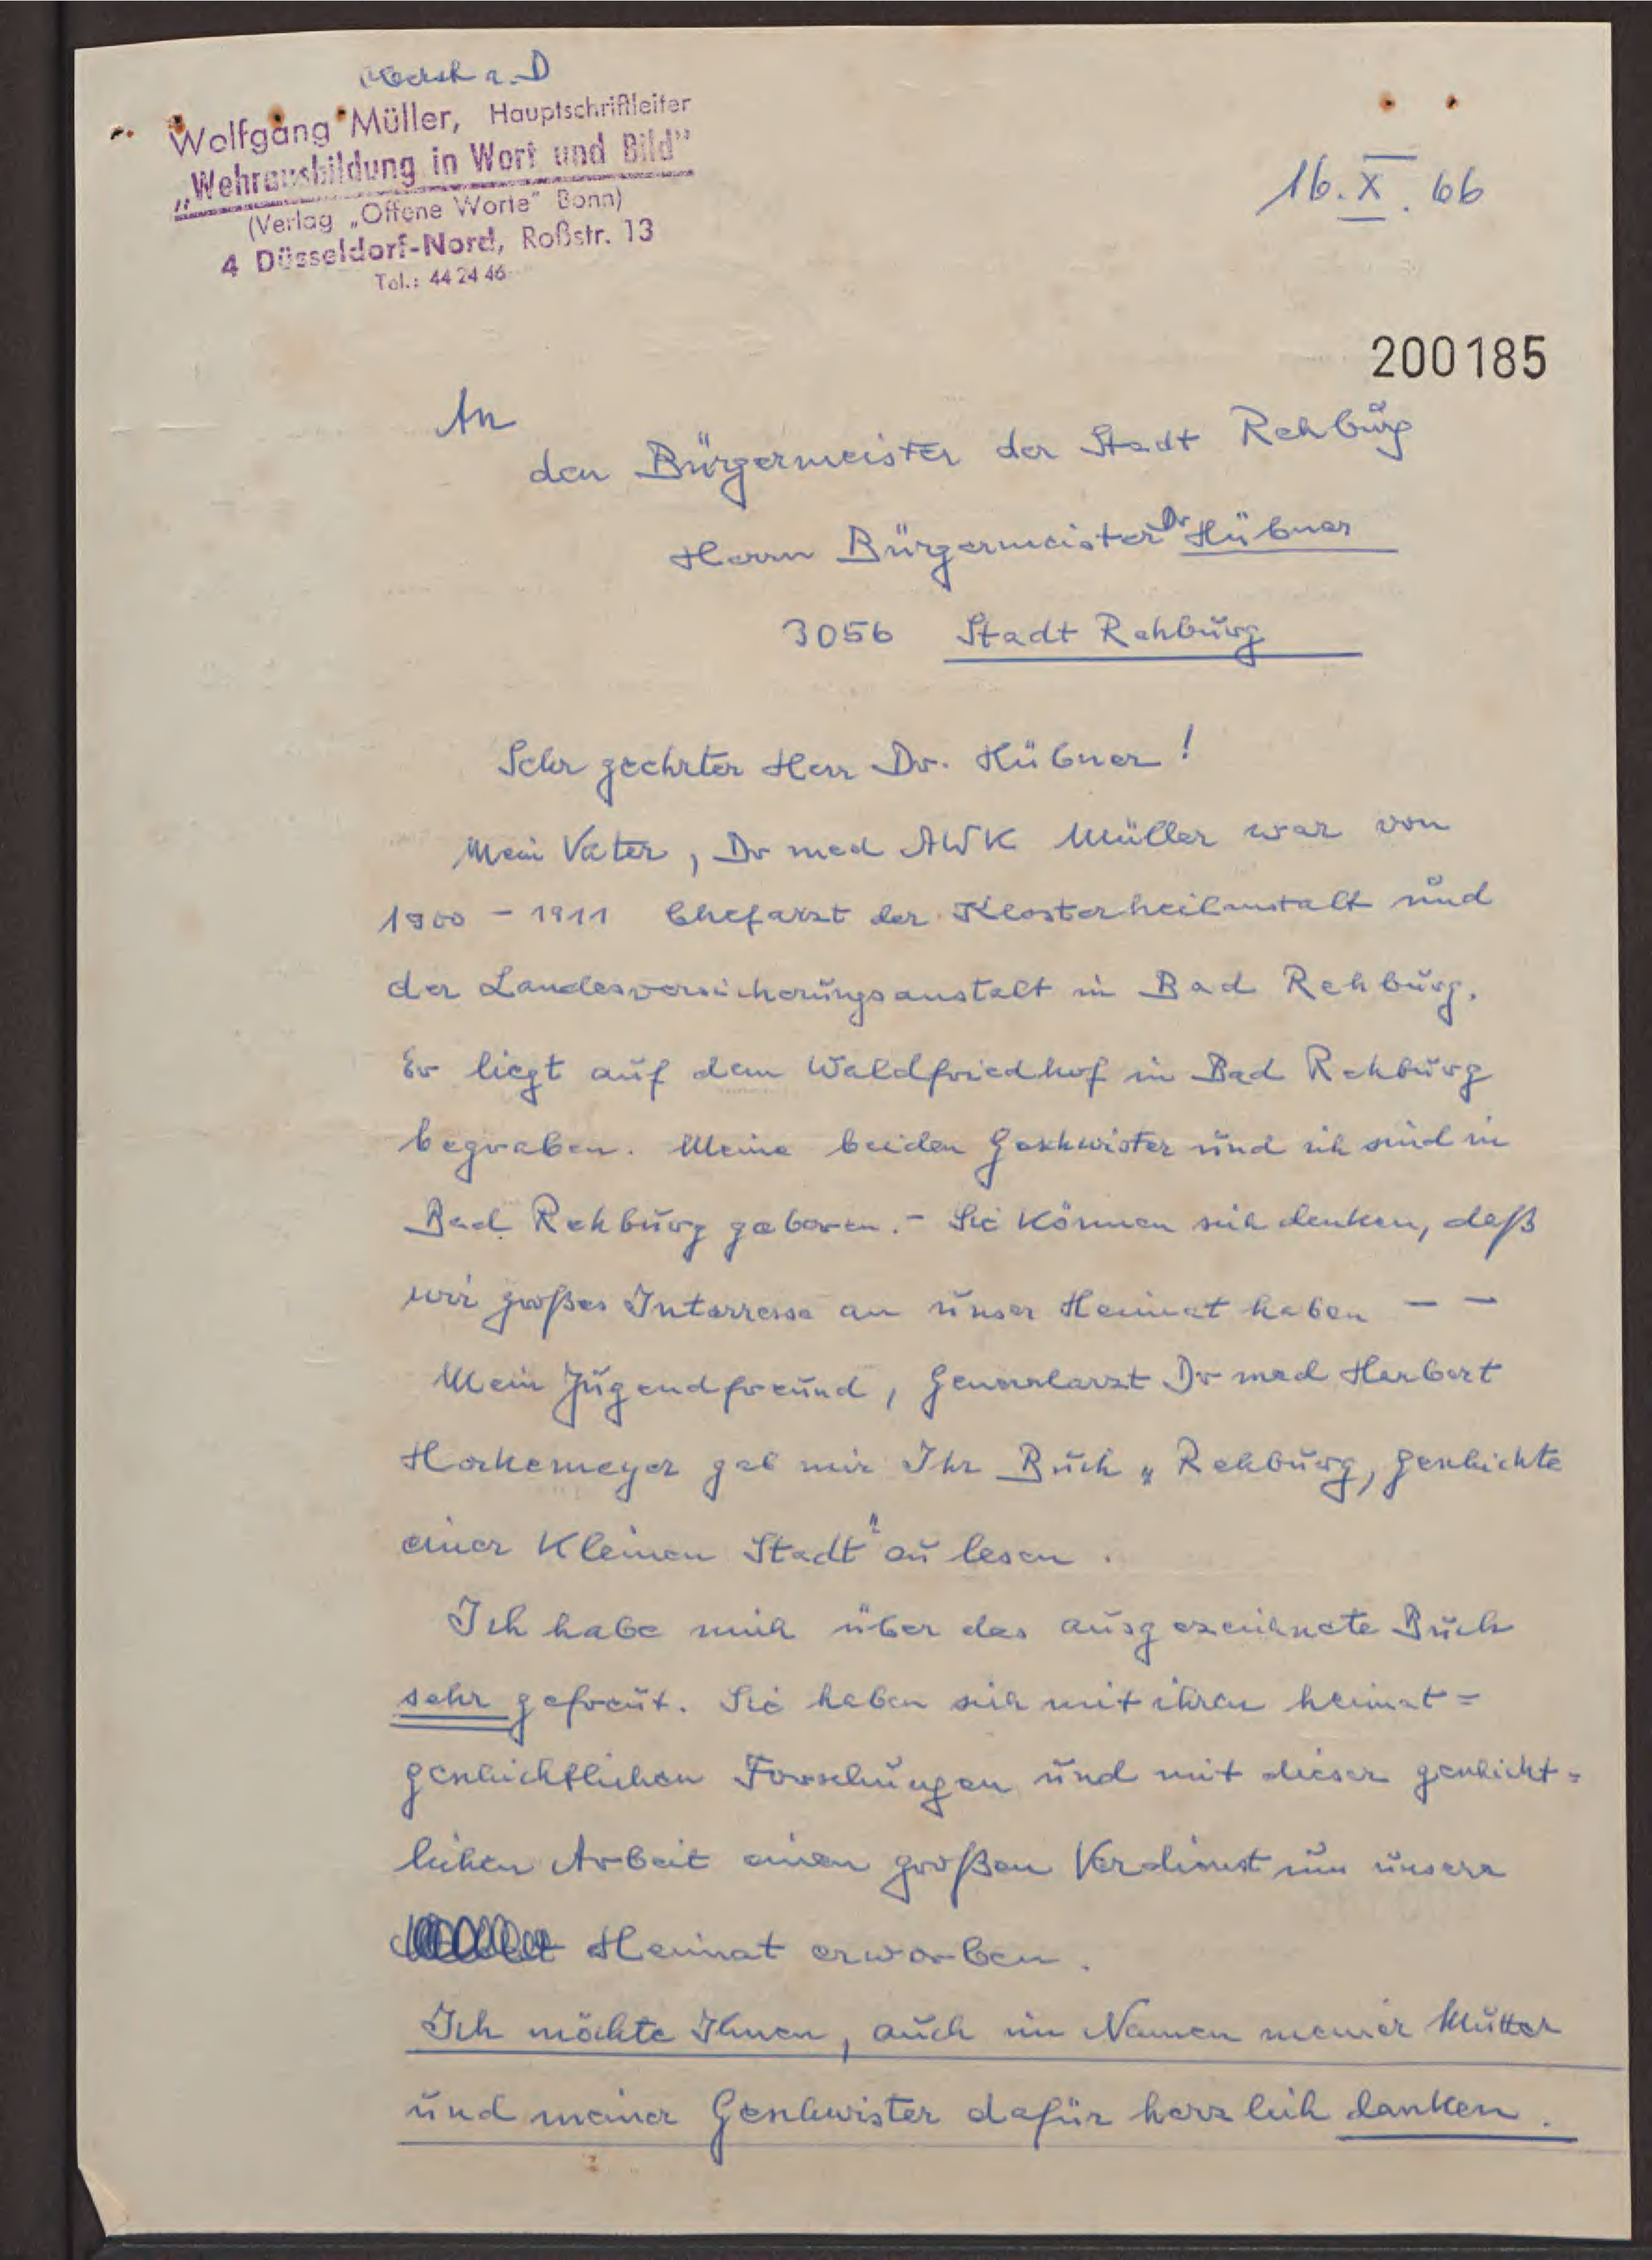 a. D
Wolfgang Müller, Hauptschriftleiter
„Wehrausbildung in Wort und Bild"
(Verlag „Offene Worte" Bonn)
4 Düsseldorf-Nord, Roßstr. 13
Tel.: 44 24 46
16. X. 66
200185
An
den Bürgermeister der Stadt Rehburg
Herrn Bürgermeister Dr Hübner
3056 Stadt Rehburg
Sehr geehrter Herr Dr. Hübner!
Mein Vater, Dr med AWK Müller war von
1900 - 1911 Chefarzt der Klosterheilanstalt und
der Landesversicherungsanstalt in Bad Rehburg.
Er liegt auf dem Waldfriedhof in Bad Rehburg
begraben. Meine beiden Geschwister und ich sind in
Bad Rehburg geboren. - Sie können sich denken, daß
wir großes Interresse an unser Heimat haben - -
Mein Jugendfreund, Generalarzt Dr med Herbert
Hockemeyer gab mir Ihr Buch „Rehburg, Geschichte
einer Kleinen Stadt" zu lesen.
Ich habe mich über das ausgezeichnete Buch
sehr gefreut. Sie haben sich mit ihren heimat=
geschichtlichen Forschungen und mit dieser geschicht=
lichen Arbeit einen großen Verdienst um unsere
Heimat erworben.
Ich möchte Ihnen, auch im Namen meiner Mutter
und meiner Geschwister dafür herzlich danken.